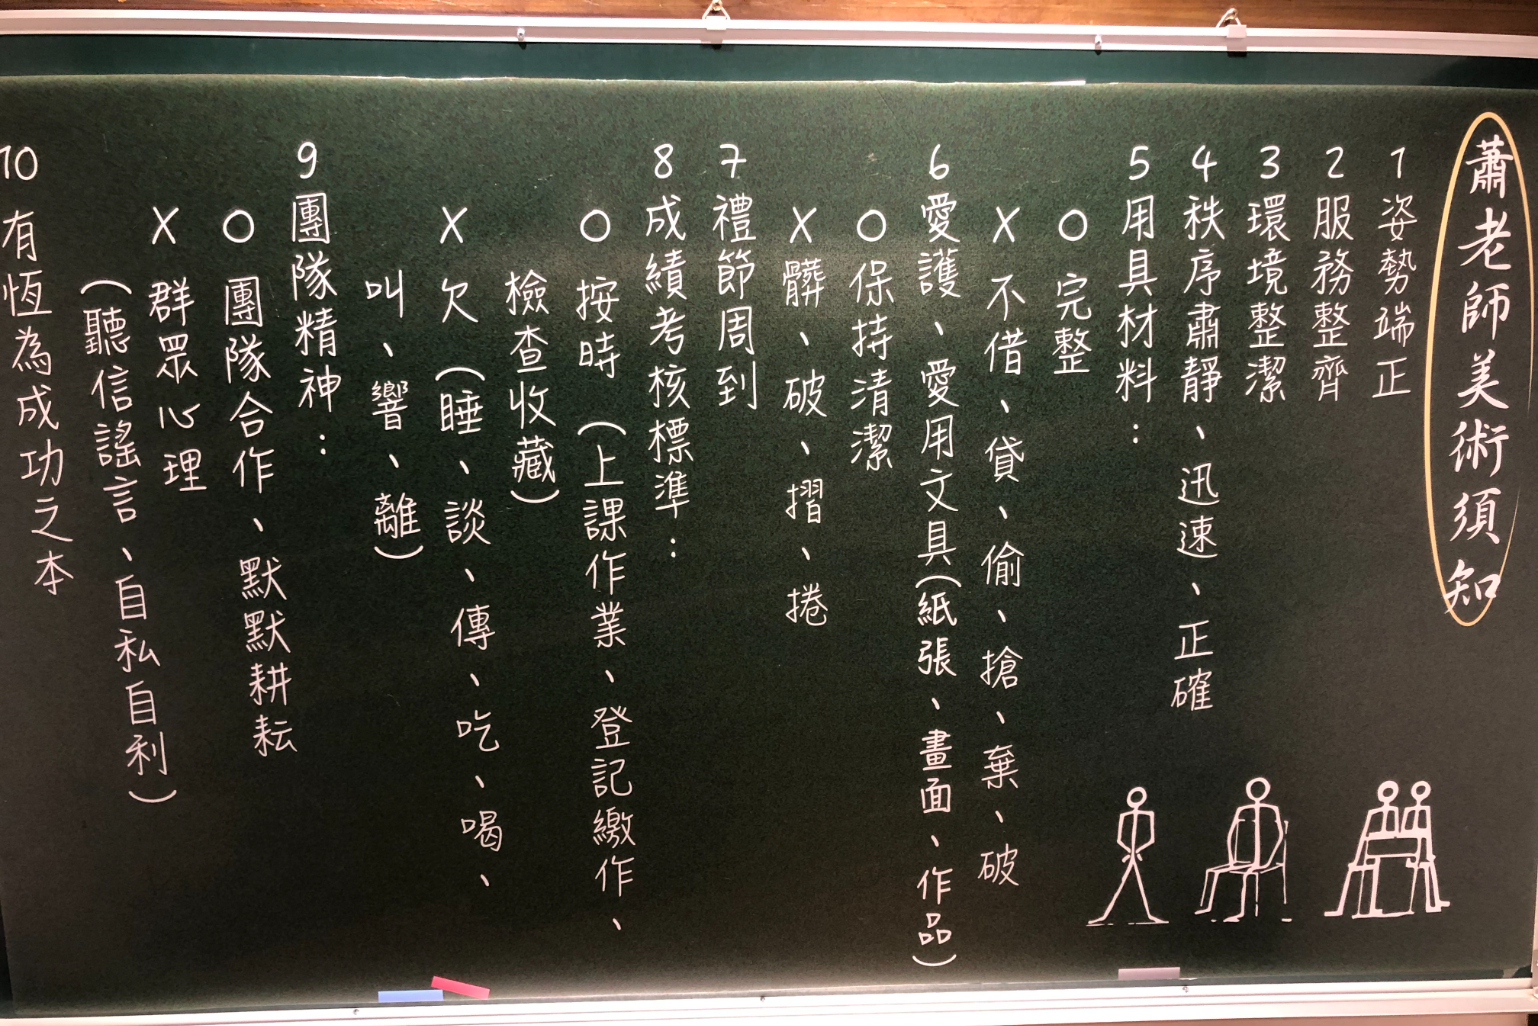 蕭老師美術須知
1 姿勢端正
2 服務整齊
3 環境整潔
4 秩序肅靜、迅速、正確
5 用具材料：
O 完整
X 不借、貸、偷、搶、棄、破
6 愛護、愛用文具(紙張、畫面、作品)
O 保持清潔
X 髒、破、摺、捲
7 禮節周到
8 成績考核標準：
O 按時(上課作業、登記繳作、
檢查收藏)
X 欠(睡、談、傳、吃、喝、
叫、響、離)
9 團隊精神：
O 團隊合作、默默耕耘
X 群眾心理
(聽信謠言、自私自利)
10 有恆為成功之本